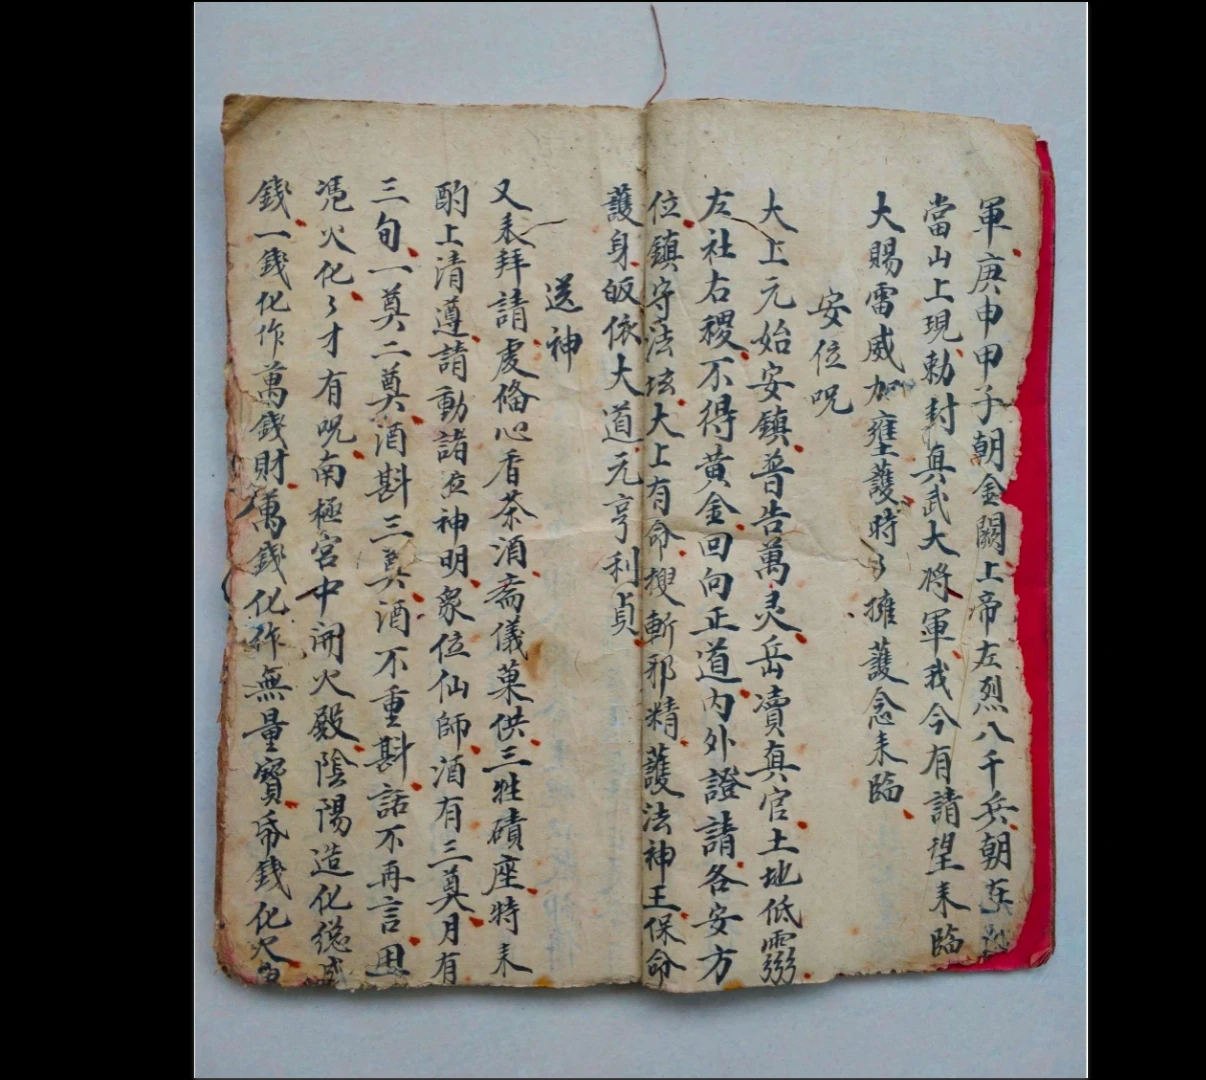 軍庚申甲子朝金闕上帝左烈八千兵朝在
當山上現勅封真武大將軍我今有請望耒臨
大賜雷威加壅護時〻擁護念耒臨
安位呪
大上元始安鎮普告萬灵岳瀆真官土地低靈
左社右稷不得黄金回向正道内外證請各安方
位鎮守法坛大上有命搜斬邪精護法神王保命
護身皈依大道元亨利貞
送神
又耒拜請虔俻心香茶酒斎儀菓供三牲碛座特耒
酌上清遵請動諸位神明衆位仙師酒有三奠月有
三旬一奠二奠酒斟三奠酒不重斟話不再言
慿火化〻才有呪南極宮中開火殿陰陽造化總成
錢一錢化作萬錢財萬錢化作無量寳帋錢化火